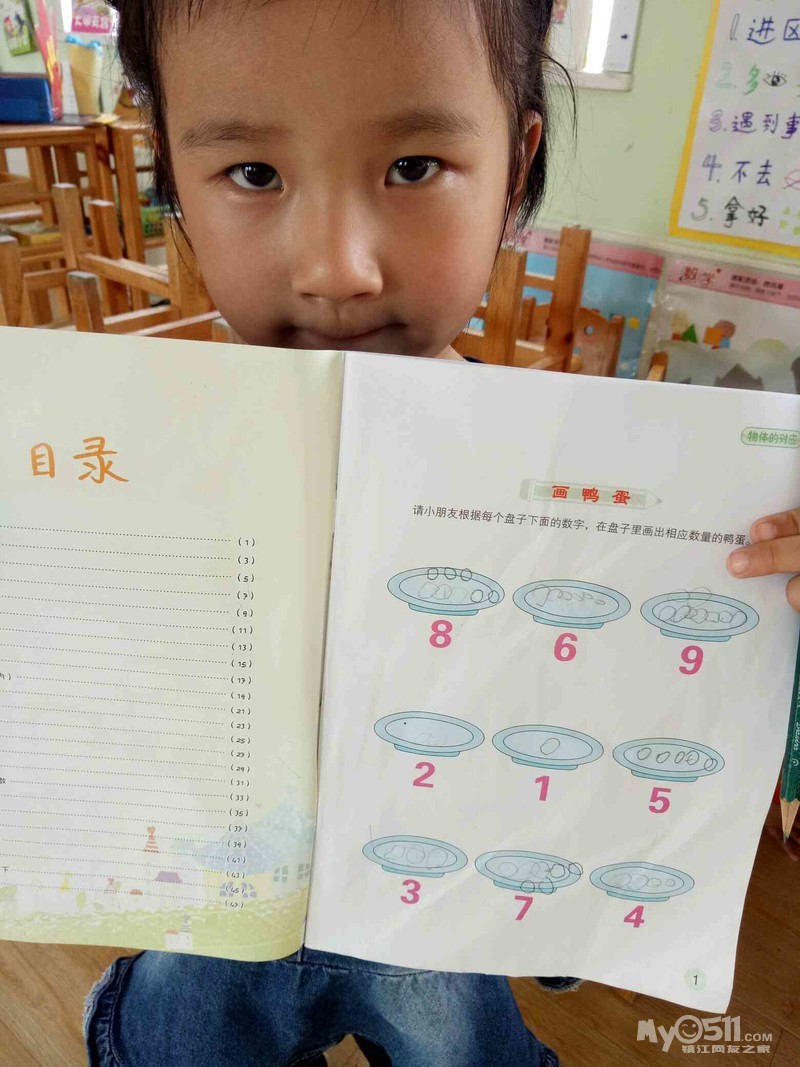 1.进区
2.多
3.遇到事
4.不去
5.拿好
数学
目录
(1)
(3)
(5)
(7)
(9)
(11)
(13)
(15)
(17)
(19)
(21)
(23)
(25)
(27)
(29)
(31)
数
(33)
(35)
(37)
(39)
(41)
下
(43)
(45)
(47)
物体的对应
画鸭蛋
请小朋友根据每个盘子下面的数字，在盘子里画出相应数量的鸭蛋。
8 6 9
2 1 5
3 7 4
1
My0511.COM
镇江网友之家